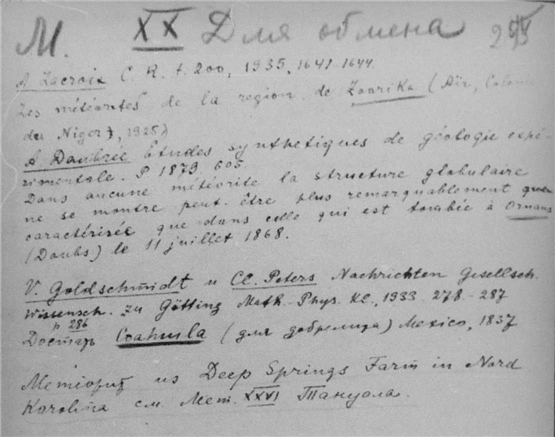 М. XX Для обмена
A. Lacroix C. R. t. 200, 1935, 1641-1644.
Les météorites de la region de Zoorika (Aïr, Colonie
du Niger), 1925)
A. Daubrée Études synthetiques de géologie expé-
rimentale. P 1879, 606.
Dans aucune météorite la structure globulaire
ne se montre peut-être plus remarquablement
caractérisée que dans celle qui est tombée à Ornans
(Doubs) le 11 juillet 1868.
V. Goldschmidt и Cl. Peters Nachrichten Gesellsch.
Wissensch. zu Götting Math-Phys. Kl., 1933. 278-287
p 286
Достать Coahuila (для добрелита) Mexico, 1837
Метеорит из Deep Springs Farm in Nord
Karolina см Мет. XXVI Тануола.